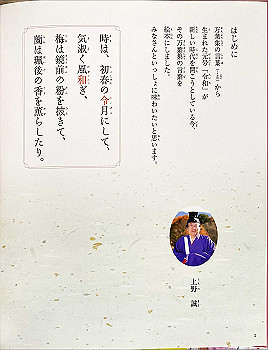 はじめに
万葉集の言葉から
生まれた元号「令和」が
新しい時代を開こうとしている今、
その万葉集の言葉を
絵本にしました。
みなさんといっしょに味わいたいと思います。
時は、初春の令月にして、
気淑く風和ぎ、
梅は鏡前の粉を披きて、
蘭は珮後の香を薫らしたり。
上野 誠